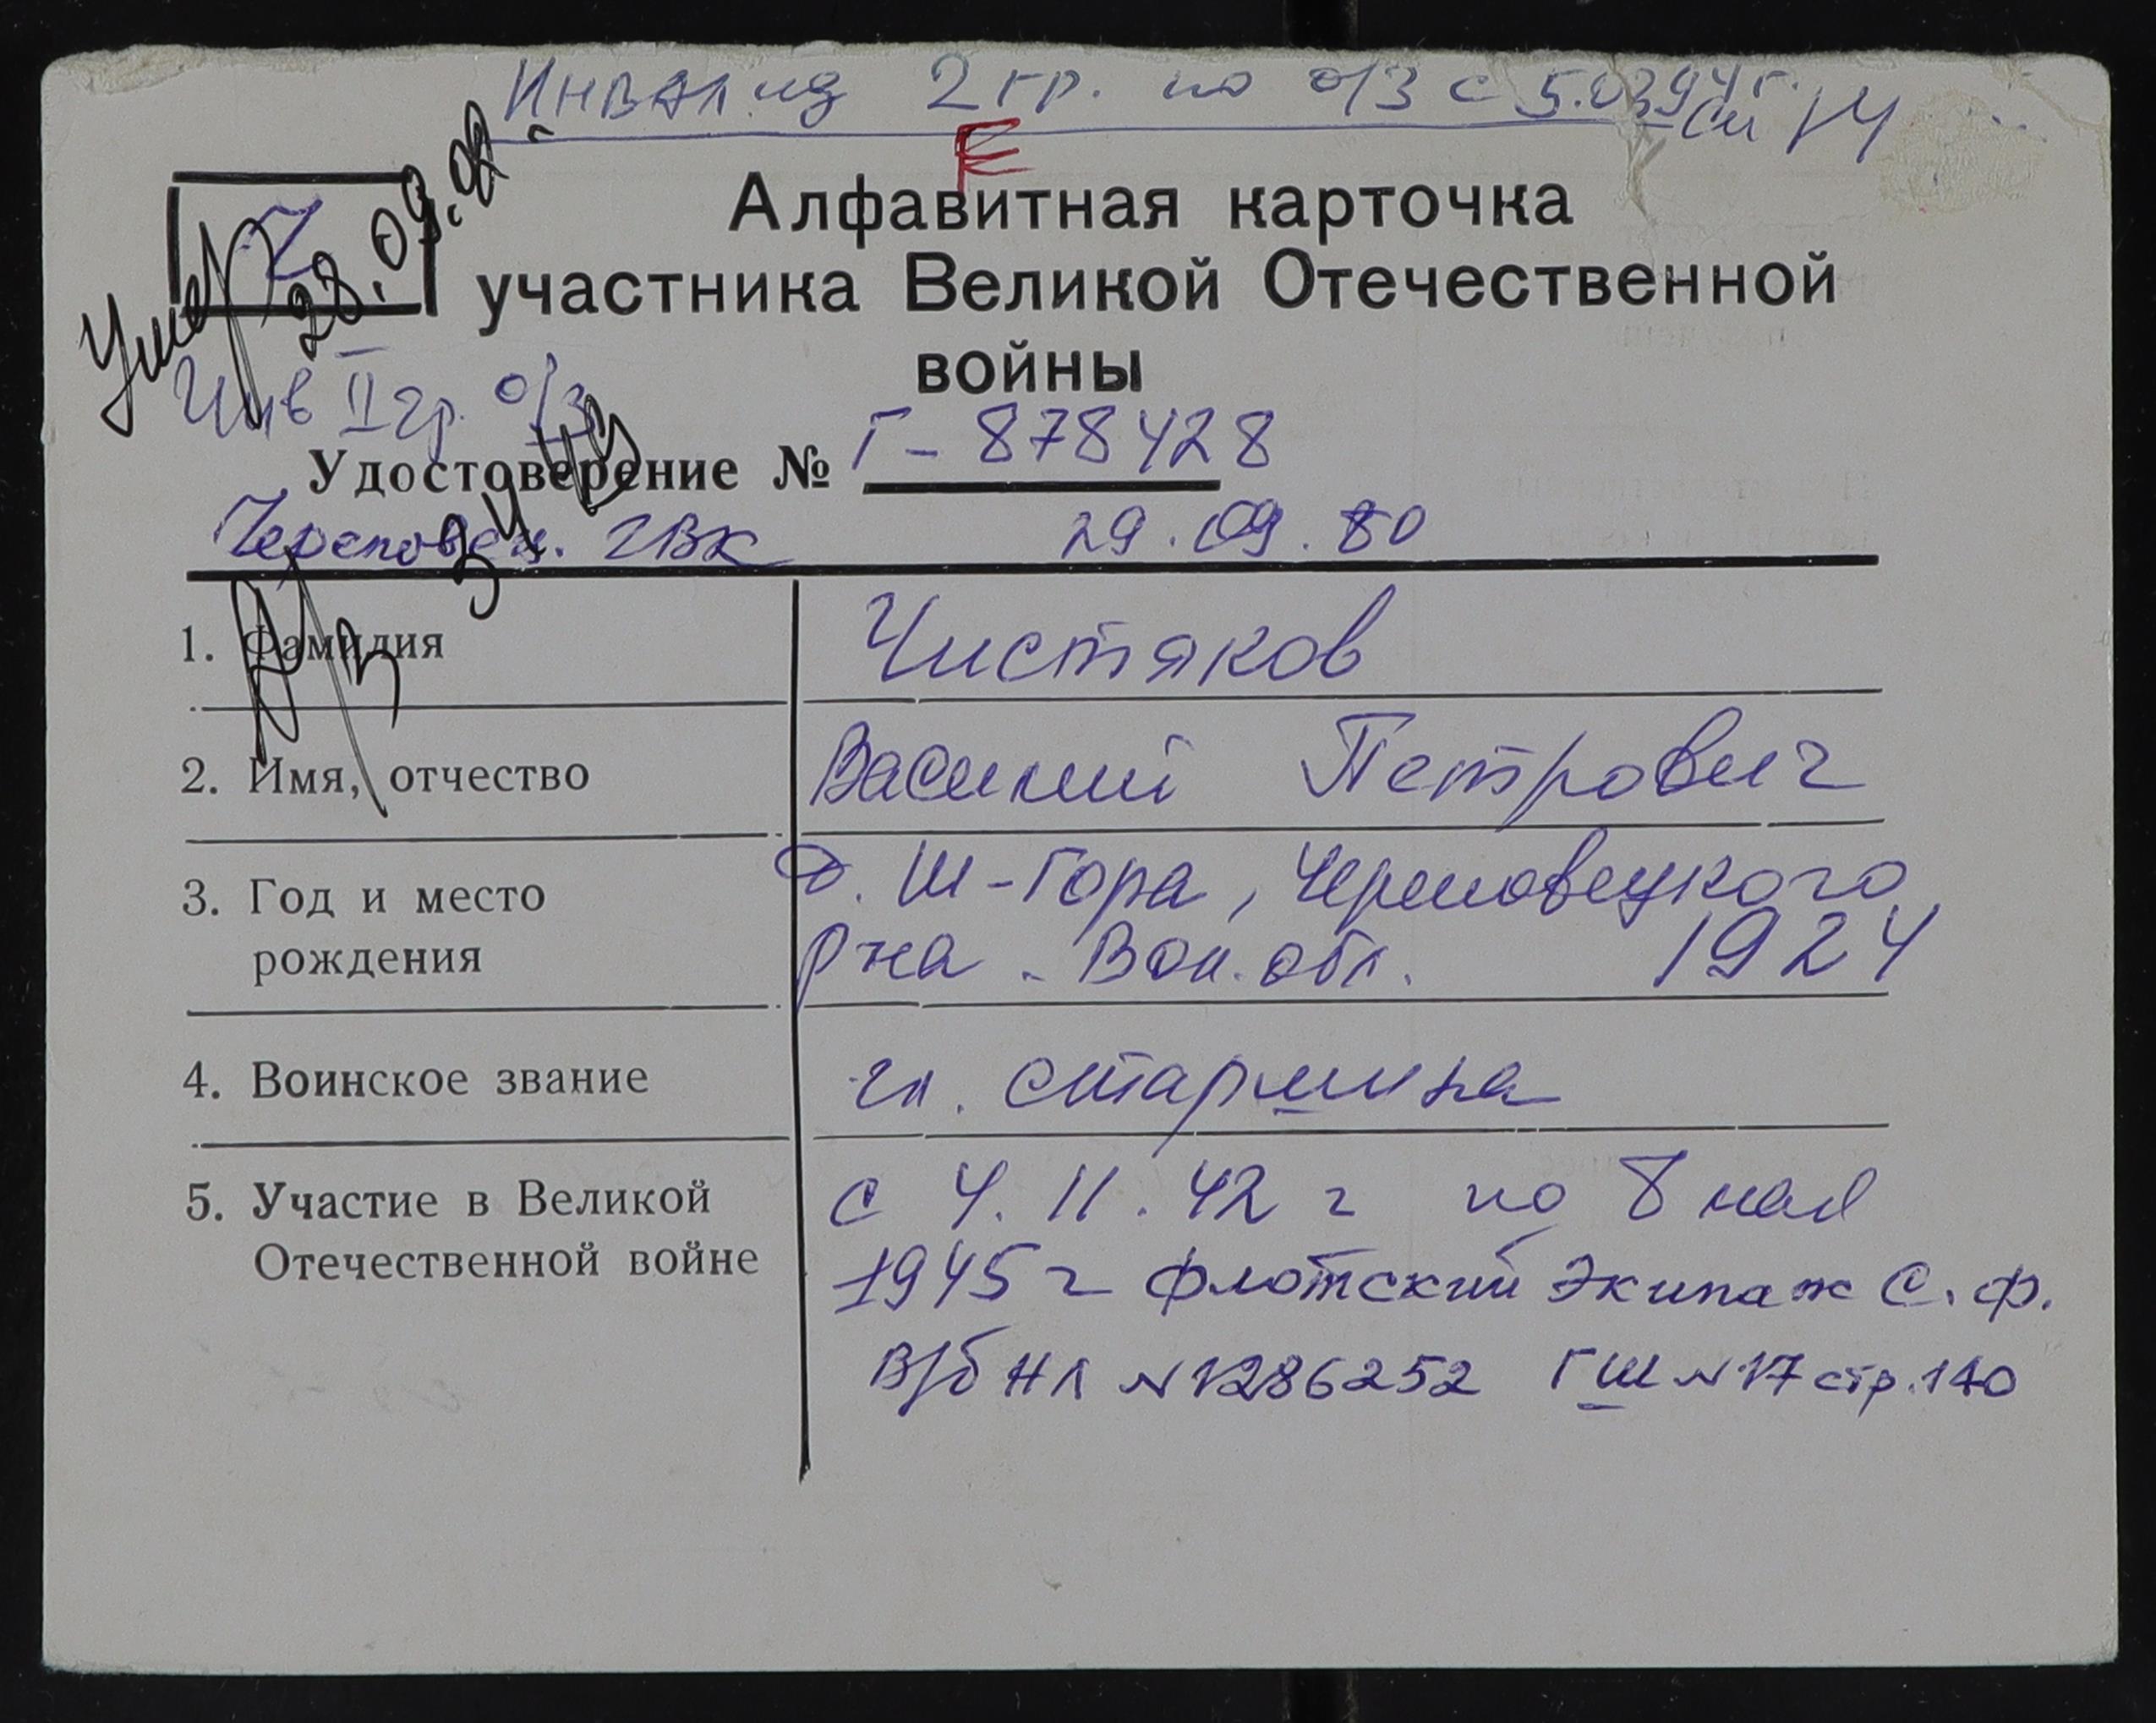 Инвалид 2 гр. по о/з с 5.03.94 г.
Е
Алфавитная карточка
участника Великой Отечественной
войны
Ч
Умер 28.09.02.
Инв II гр. о/з
Удостоверение № Г-878428
Череповец. ГВК 29.09.80
1. Фамилия Чистяков
2. Имя, отчество Василий Петрович
3. Год и место д. Ш-Гора, Череповецкого
рождения р-на. Вол. обл. 1924
4. Воинское звание гл. старшина
5. Участие в Великой с 4.11.42 г по 8 мая
Отечественной войне 1945 г флотский экипаж С.Ф.
В/б НЛ № 1286252 ГШ № 17 стр. 140